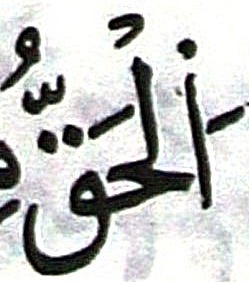 اَلْحَقُّ